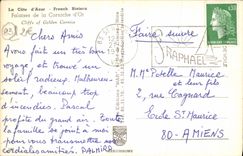 La Côte d'Azur - French Riviera
Falaises de la Corniche d'Or
Cliffs of Golden Cornice
Chers Amis
Avons fait un très bon
voyage et trouvé un
soleil radieux. Malheureu-
sement, beaucoup trop
d'incendies. Pascal
profite du grand air. Toute
la famille se joint à moi
pour vous transmettre nos
cordiales amitiés. PALMIRA
Faire suivre
RAPHAEL
0.30
M. Me Potelle Maurice
et leur fils
2, rue Cagnard
Cité St Maurice
80 - AMIENS